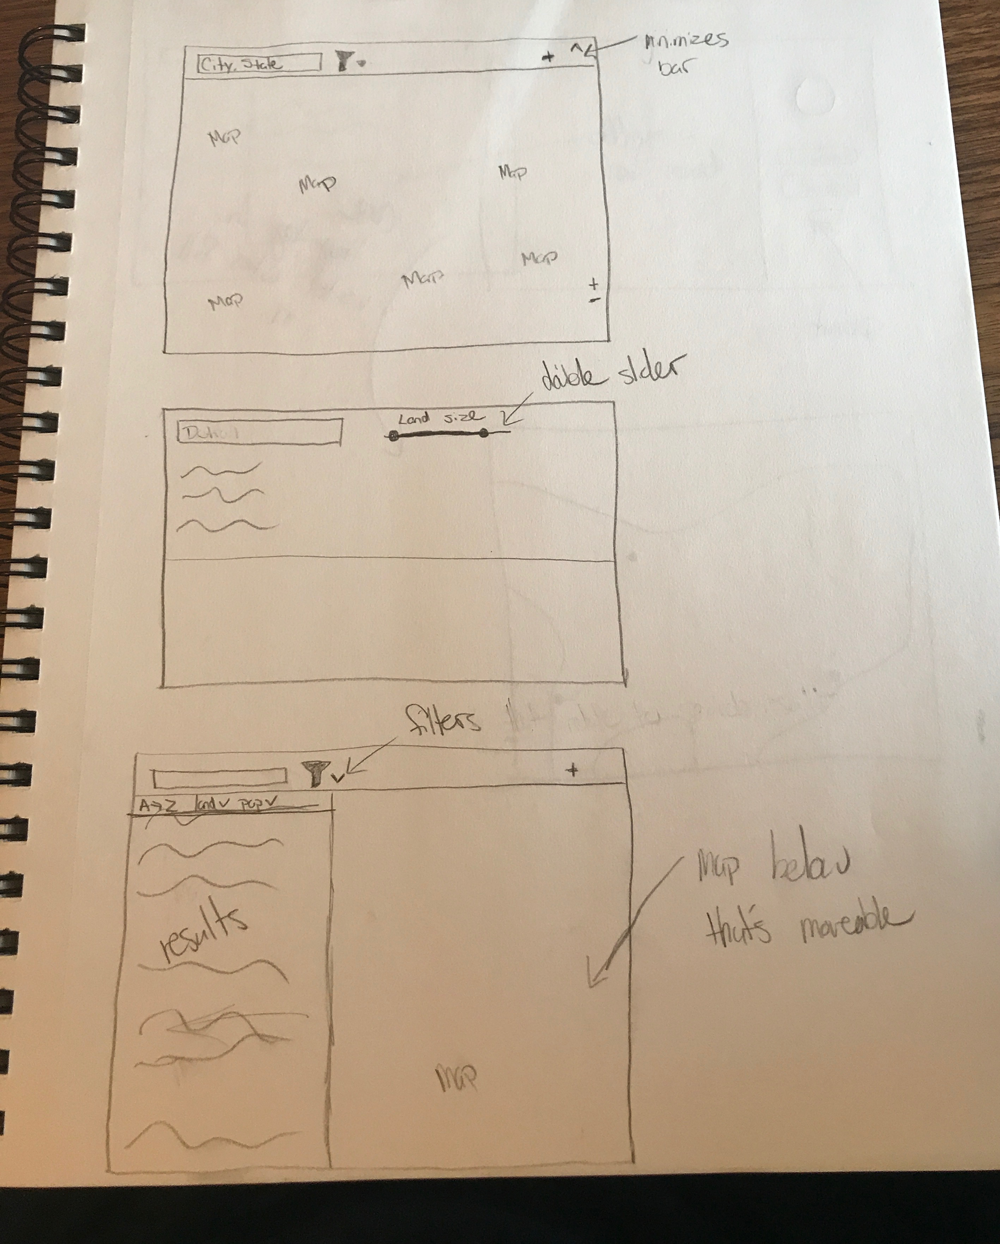 City, State
+
minimizes
bar
Map
Map
Map
Map
Map
Map
+
-
double slider
Land size
filters
+
A→Z land pop
results
map below
that's moveable
map